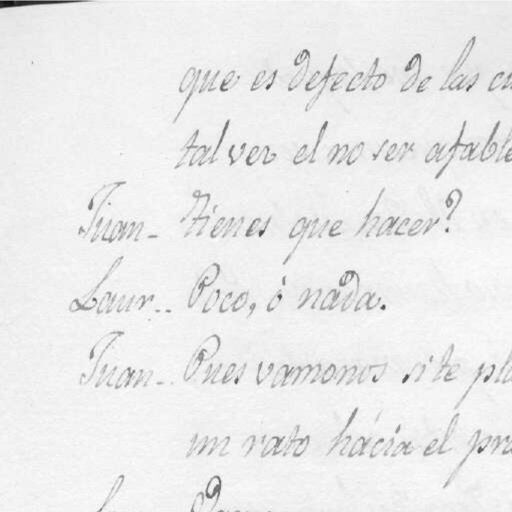 que es defecto de las
tal vez el no ser afable
Juan- Tienes que hacer?
Laur.. Poco, ò nada.
Juan- Pues vamonos si te
un rato hácia el